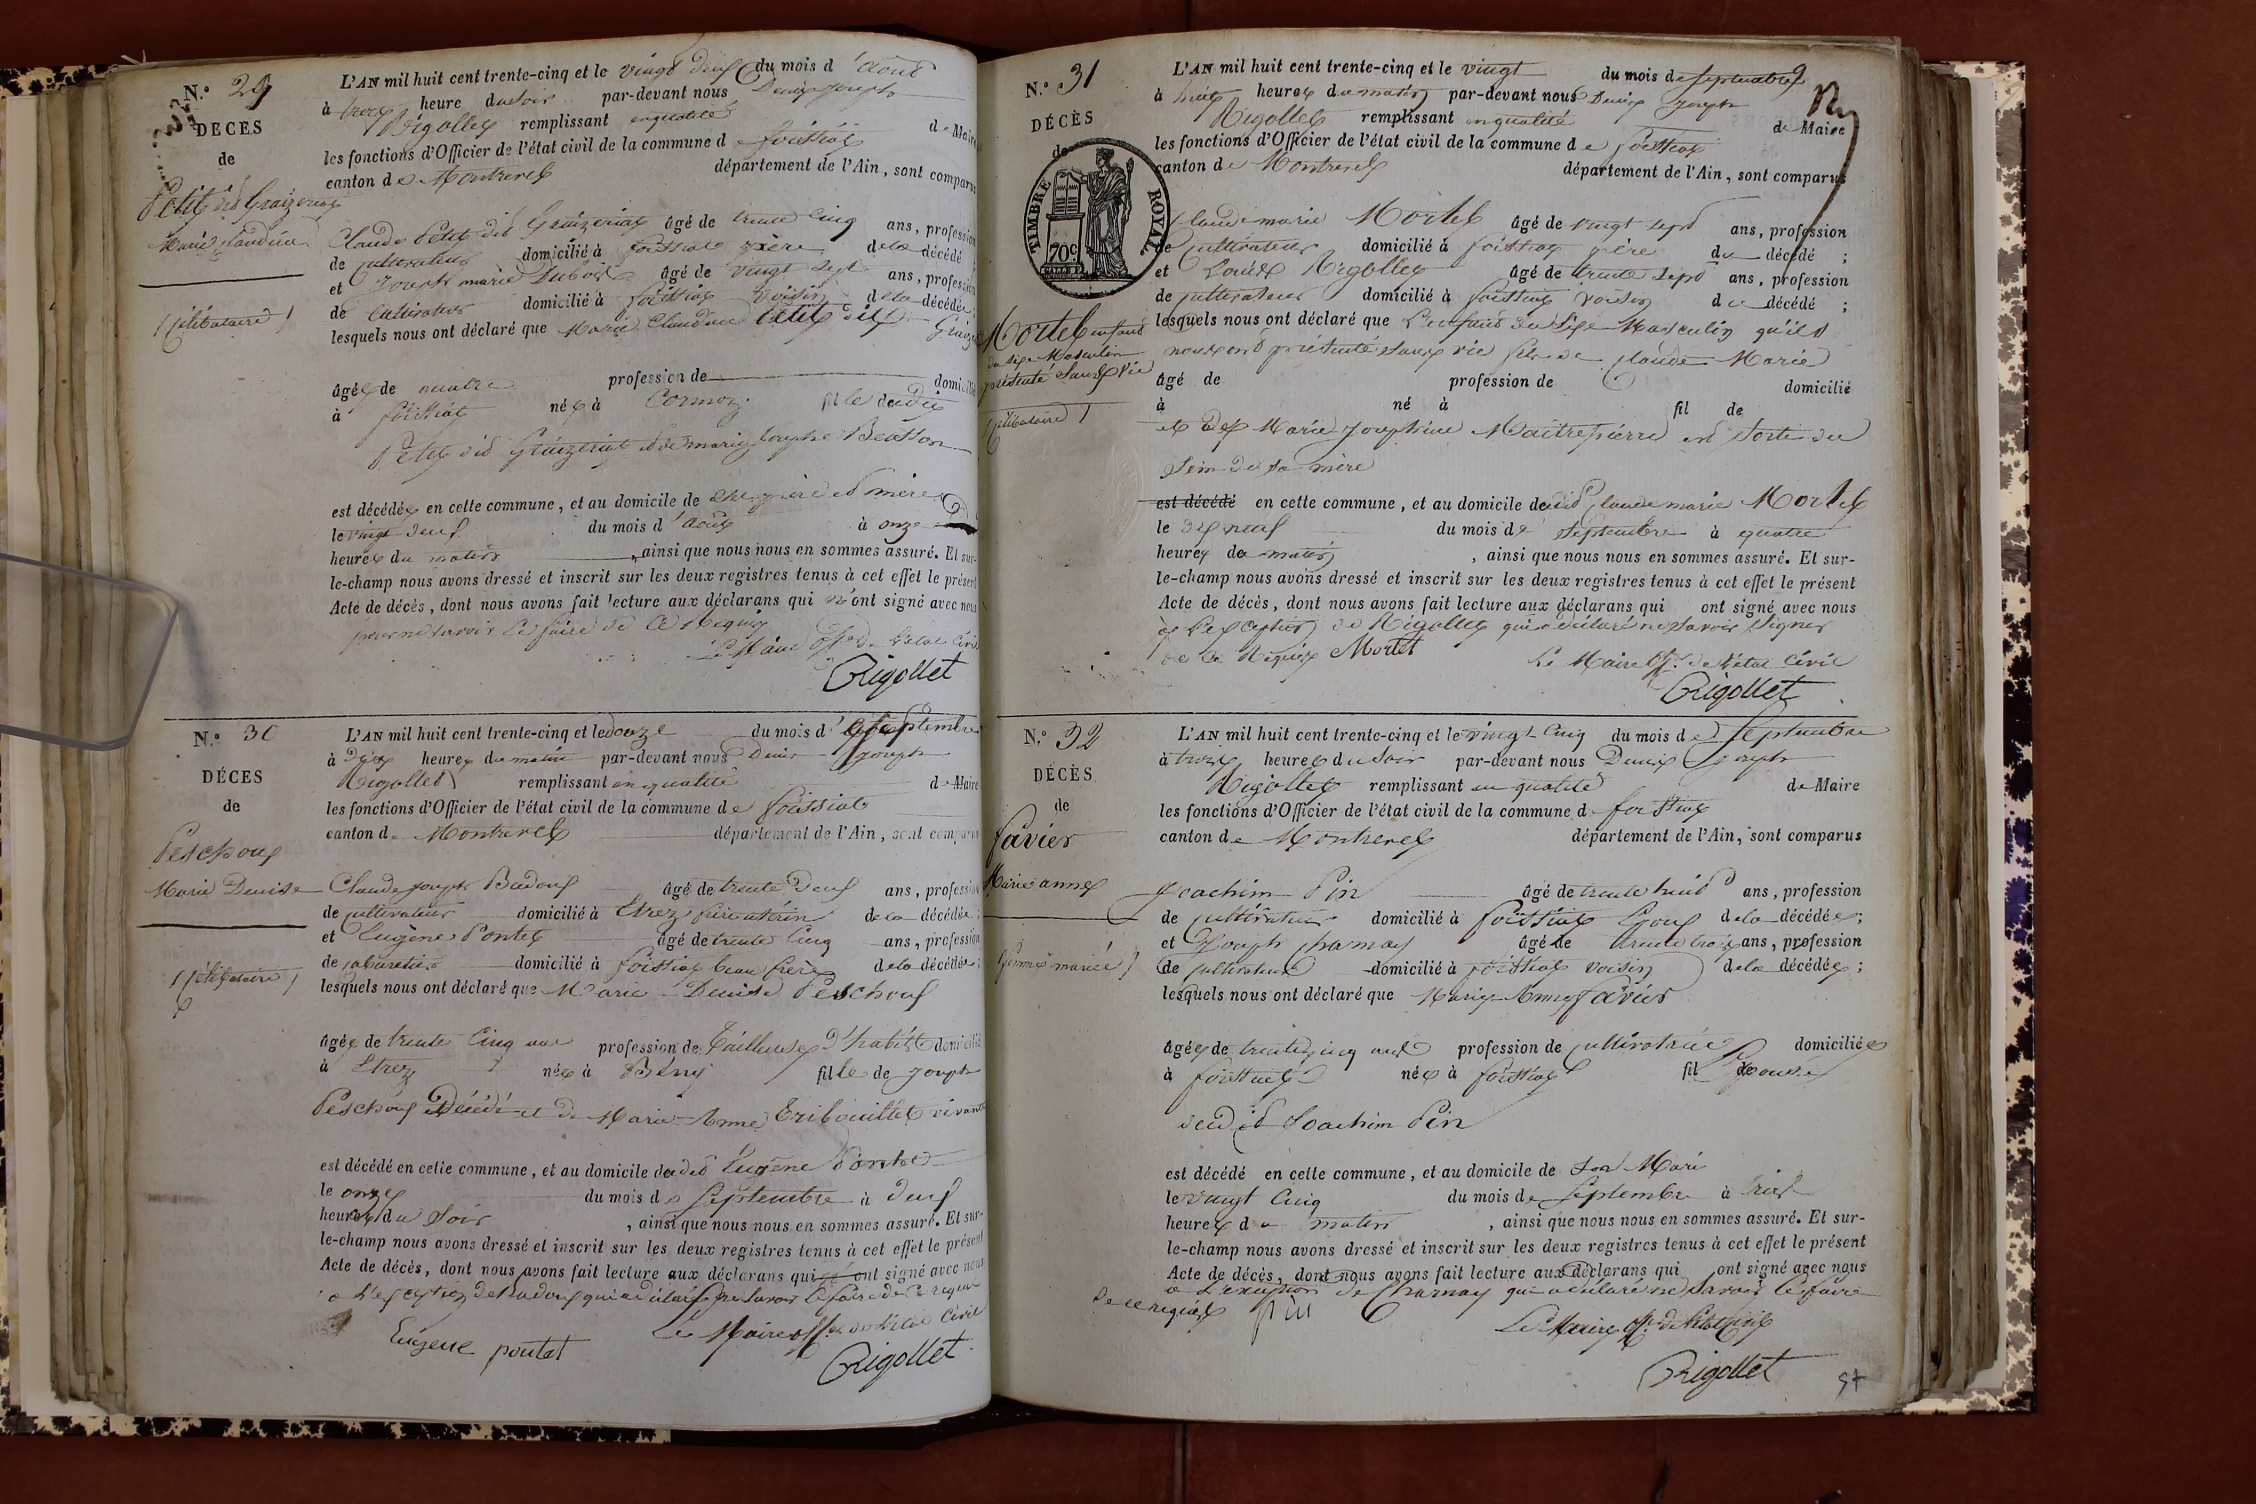 N.º 29
DÉCES
de
Petit dit Graizeriat
Marie Claudine
(Célibataire)
L'AN mil huit cent trente-cinq et le vingt deux du mois d'août
à trois heure du soir par-devant nous Denis Joseph
Rigollet remplissant en qualité de Maire
les fonctions d'Officier de l'état civil de la commune de foissiat
canton de Montrevel département de l'Ain, sont comparus
Claude Petit dit Graizeriat âgé de trente cinq ans, profession
de cultivateur domicilié à foissiat père de la décédée
et Joseph marie Dubois âgé de vingt sept ans, profession
de cultivateur domicilié à foissiat voisin de la décédée;
lesquels nous ont déclaré que Marie Claudine Petit dit
âgée de quatre profession de domicilié
à foissiat née à Cormoz fille dudit
Petit dit Graizeriat et de marie Josephe
est décédée en cette commune, et au domicile de ses père et mère
le vingt deux du mois d'août à onze
heures du matin, ainsi que nous nous en sommes assuré. Et sur-
le-champ nous avons dressé et inscrit sur les deux registres tenus à cet effet le présent
Acte de décès, dont nous avons fait lecture aux déclarans qui n'ont signé avec nous
pour ne savoir le faire de ce Requis
Le Maire off. de l'état Civil
Rigollet
N.º 30
DÉCES
de
Peschoux
Marie Denise
(Célibataire)
L'AN mil huit cent trente-cinq et le douze du mois d septembre
à dix heures du matin par-devant nous Denis Joseph
Rigollet remplissant en qualité de Maire
les fonctions d'Officier de l'état civil de la commune de foissiat
canton de Montrevel département de l'Ain, sont comparus
Claude Joseph Badoux âgé de trente deux ans, profession
de cultivateur domicilié à Etrez frère utérin de la décédée;
et Eugène Pontet âgé de trente cinq ans, profession
de cabaretier domicilié à foissiat beau frère de la décédée;
lesquels nous ont déclaré que Marie Denise Peschoux
âgée de trente cinq ans profession de Tailleuse d'habits domicilié
à Etrez née à Bény fille de Joseph
Peschoux décédé et de Marie Anne Tribouillet vivante
est décédé en cette commune, et au domicile dudit Eugène Pontet
le onze du mois de septembre à deux
heures du soir, ainsi que nous nous en sommes assuré. Et sur-
le-champ nous avons dressé et inscrit sur les deux registres tenus à cet effet le présent
Acte de décès, dont nous avons fait lecture aux déclarans qui ont signé avec nous
à l'exception de Badoux qui a déclaré ne savoir le faire de ce requis
Le Maire off. de l'état Civil
Eugene pontet
Rigollet
N.º 31
DÉCÈS
de
TIMBRE ROYAL
70c
Mortel enfant
du sexe Masculin
présenté sans vie
(Célibataire)
L'AN mil huit cent trente-cinq et le vingt du mois de septembre
à huit heures du matin par-devant nous Denis Joseph
Rigollet remplissant en qualité de Maire
les fonctions d'Officier de l'état civil de la commune de foissiat
canton de Montrevel département de l'Ain, sont comparus
Claude marie Mortel âgé de vingt sept ans, profession
de cultivateur domicilié à foissiat père du décédé;
et Louis Rigollet âgé de trente sept ans, profession
de cultivateur domicilié à foissiat voisin du décédé;
lesquels nous ont déclaré que l'enfant du sexe Masculin qu'ils
nous ont présenté sans vie fils de Claude Marie
âgé de profession de domicilié
à né à fil de
et de Marie Josephine Maitrepierre est sorti du
sein de sa mère
est décédé en cette commune, et au domicile dudit Claude marie Mortel
le dix neuf du mois de septembre à quatre
heures du matin, ainsi que nous nous en sommes assuré. Et sur-
le-champ nous avons dressé et inscrit sur les deux registres tenus à cet effet le présent
Acte de décès, dont nous avons fait lecture aux déclarans qui ont signé avec nous
à l'exception de Rigollet qui a déclaré ne savoir signer
de ce Requis Mortel
Le Maire off. de l'état Civil
Rigollet
N.º 32
DÉCÈS
de
favier
Marie anne
(femme mariée)
L'AN mil huit cent trente-cinq et le vingt cinq du mois de septembre
à trois heures du soir par-devant nous Denis Joseph
Rigollet remplissant en qualité de Maire
les fonctions d'Officier de l'état civil de la commune de foissiat
canton de Montrevel département de l'Ain, sont comparus
Joachim Pin âgé de trente huit ans, profession
de cultivateur domicilié à foissiat Epoux de la décédée;
et Joseph charnay âgé de trente trois ans, profession
de cultivateur domicilié à foissiat voisin de la décédée;
lesquels nous ont déclaré que Marie Anne favier
âgée de trente cinq ans profession de cultivatrice domiciliée
à foissiat née à foissiat fil Epouse
dudit Joachim Pin
est décédé en cette commune, et au domicile de son Mari
le vingt cinq du mois de septembre à trois
heures du matin, ainsi que nous nous en sommes assuré. Et sur-
le-champ nous avons dressé et inscrit sur les deux registres tenus à cet effet le présent
Acte de décès, dont nous avons fait lecture aux déclarans qui ont signé avec nous
à l'exception de Charnay qui a déclaré ne savoir le faire
de ce requis pin
Le Maire off. de l'état Civil
Rigollet
97